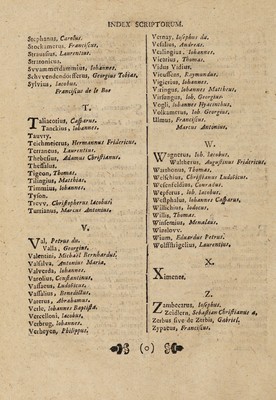 INDEX SCRIPTORUM.
Stephanus, Carolus.
Stockamerus, Franciscus,
Straussius, Laurentius.
Stratonicus,
Swammerdammius, Iohannes.
Schvvendendorfferus, Georgius Tobias,
Sylvius, Iacobus.
Franciscus de le Boe
T.
Taliacotius, Casparus.
Tanckius, Iohannes.
Tauvry.
Teichmeierus, Hermannus Fridericus,
Terraneus, Laurentius.
Thebesius, Adamus Christianus.
Thessalus.
Tigeon, Thomas.
Tilingius, Matthias.
Timmius, Iohannes.
Tyson.
Trevv, Christophorus Iacobus.
Turrianus, Marcus Antonius.
V.
Val, Petrus du.
Valla, Georgius.
Valentini, Michaël Bernhardus.
Valsalva, Antonius Maria,
Valverda, Iohannes.
Varolius, Constantinus.
Vassaeus, Ludovicus.
Vassalius, Benedictus.
Vaterus, Abrahamus.
Verle, Iohannes Baptista.
Vercelloni, Iacobus,
Verbrug, Iohannes.
Verheyen, Philippus.
Vernay, Iosephus du.
Vesalius, Andreas.
Veslingius, Iohannes.
Vicarius, Thomas.
Vidus Vidius.
Vieussens, Raymundus.
Vigierius, Iohannes.
Viringus, Iohannes Mattheus,
Virsungus, Ioh. Georgius.
Vogli, Iohannes Hyacinthus,
Volkamerus, Ioh. Georgius,
Ulmus, Franciscus.
Marcus Antonius.
W.
Wagnerus, Ioh. Iacobus,
Waltherus, Augustinus Fridericus,
Warthonus, Thomas.
Welschius, Christianus Ludovicus.
Wesenfeldius, Conradus,
Wepferus, Ioh. Iacobus,
Westphalus, Iohannes Casparus,
Willichius, Iodocus,
Willis, Thomas.
Winsemius, Menalaus,
Winslovv.
Wium, Eduardus Petrus.
Wolffstrigelius, Laurentius,
X.
Ximenez.
Z.
Zambecarus, Iosephus.
Zeidlern, Sebastian Christianus a,
Zerbus sive de Zerbis, Gabriel.
Zypaeus, Franciscus.
(o)